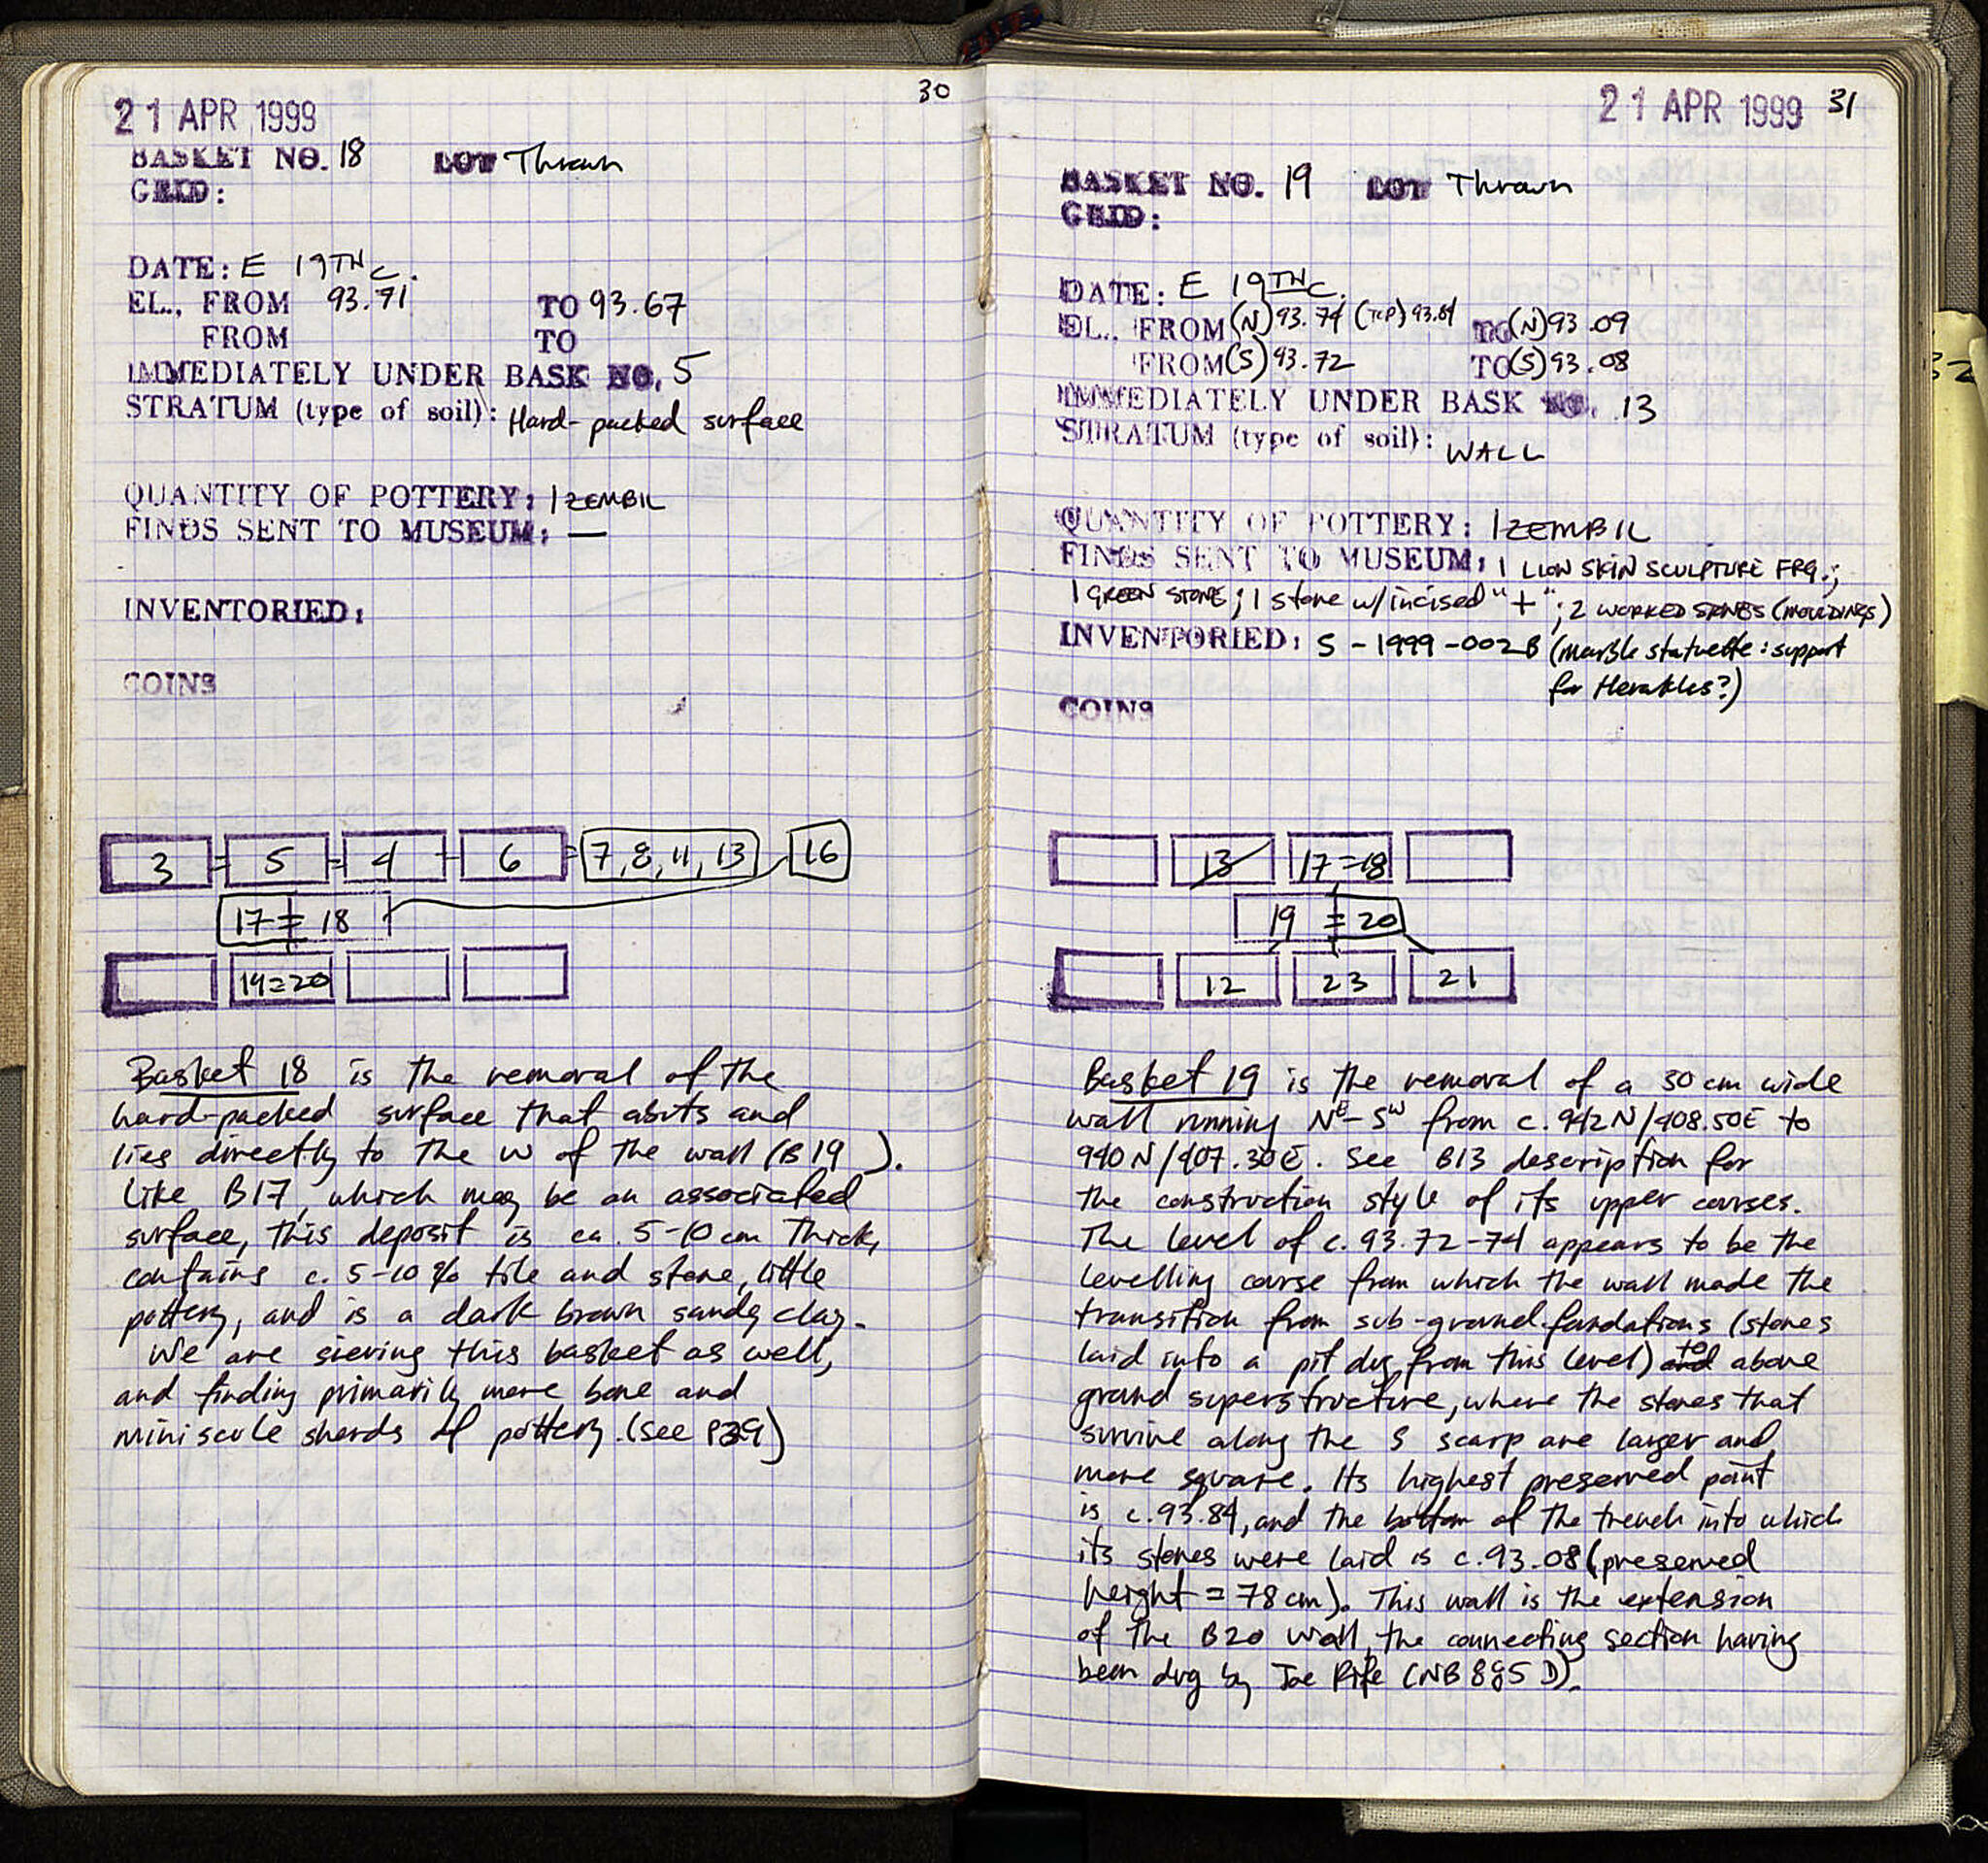 30
21 APR 1999
BASKET NO. 18 LOT Thrown
GRID:
DATE: E 19TH C.
EL., FROM 93.71 TO 93.67
FROM TO
IMMEDIATELY UNDER BASK NO. 5
STRATUM (type of soil): Hard-packed surface
QUANTITY OF POTTERY: 1 ZEMBIL
FINDS SENT TO MUSEUM: —
INVENTORIED:
COINS
3 = 5 = 4 = 6 = 7, 8, 11, 13 16
17 = 18
19=20
Basket 18 is the removal of the
hard-packed surface that abuts and
lies directly to the W of the wall (B19 ).
Like B17, which may be an associated
surface, this deposit is ca. 5-10 cm thick,
contains c. 5-10 % tile and stone, little
pottery, and is a dark brown sandy clay.
We are sieving this basket as well,
and finding primarily more bone and
miniscule sherds of pottery. (see P39)
21 APR 1999 31
BASKET NO. 19 LOT Thrown
GRID:
DATE: E 19TH C.
EL., FROM (N) 93.74 (TOP) 93.84 TO (N) 93.09
FROM (S) 93.72 TO (S) 93.08
IMMEDIATELY UNDER BASK NO. 13
STRATUM (type of soil): WALL
QUANTITY OF POTTERY: 1 ZEMBIL
FINDS SENT TO MUSEUM: 1 LION SKIN SCULPTURE FRG.;
1 GREEN STONE; 1 stone w/incised "+"; 2 WORKED STONES (MOULDINGS)
INVENTORIED: S - 1999 - 002 B (marble statuette: support
for Herakles?)
COINS
13 17=18
19 = 20
12 23 21
Basket 19 is the removal of a 30 cm wide
wall running NE-SW from c. 942N/408.50E to
940N/407.30E. See B13 description for
the construction style of its upper courses.
The level of c. 93.72-74 appears to be the
levelling course from which the wall made the
transition from sub-ground foundations (stones
laid into a pit dug from this level) and to above
ground superstructure, where the stones that
survive along the S scarp are larger and
more square. Its highest preserved point
is c. 93.84, and the bottom of the trench into which
its stones were laid is c. 93.08 (preserved
height = 78 cm). This wall is the extension
of the B20 wall, the connecting section having
been dug by Joe Rife (NB 895 D).
32